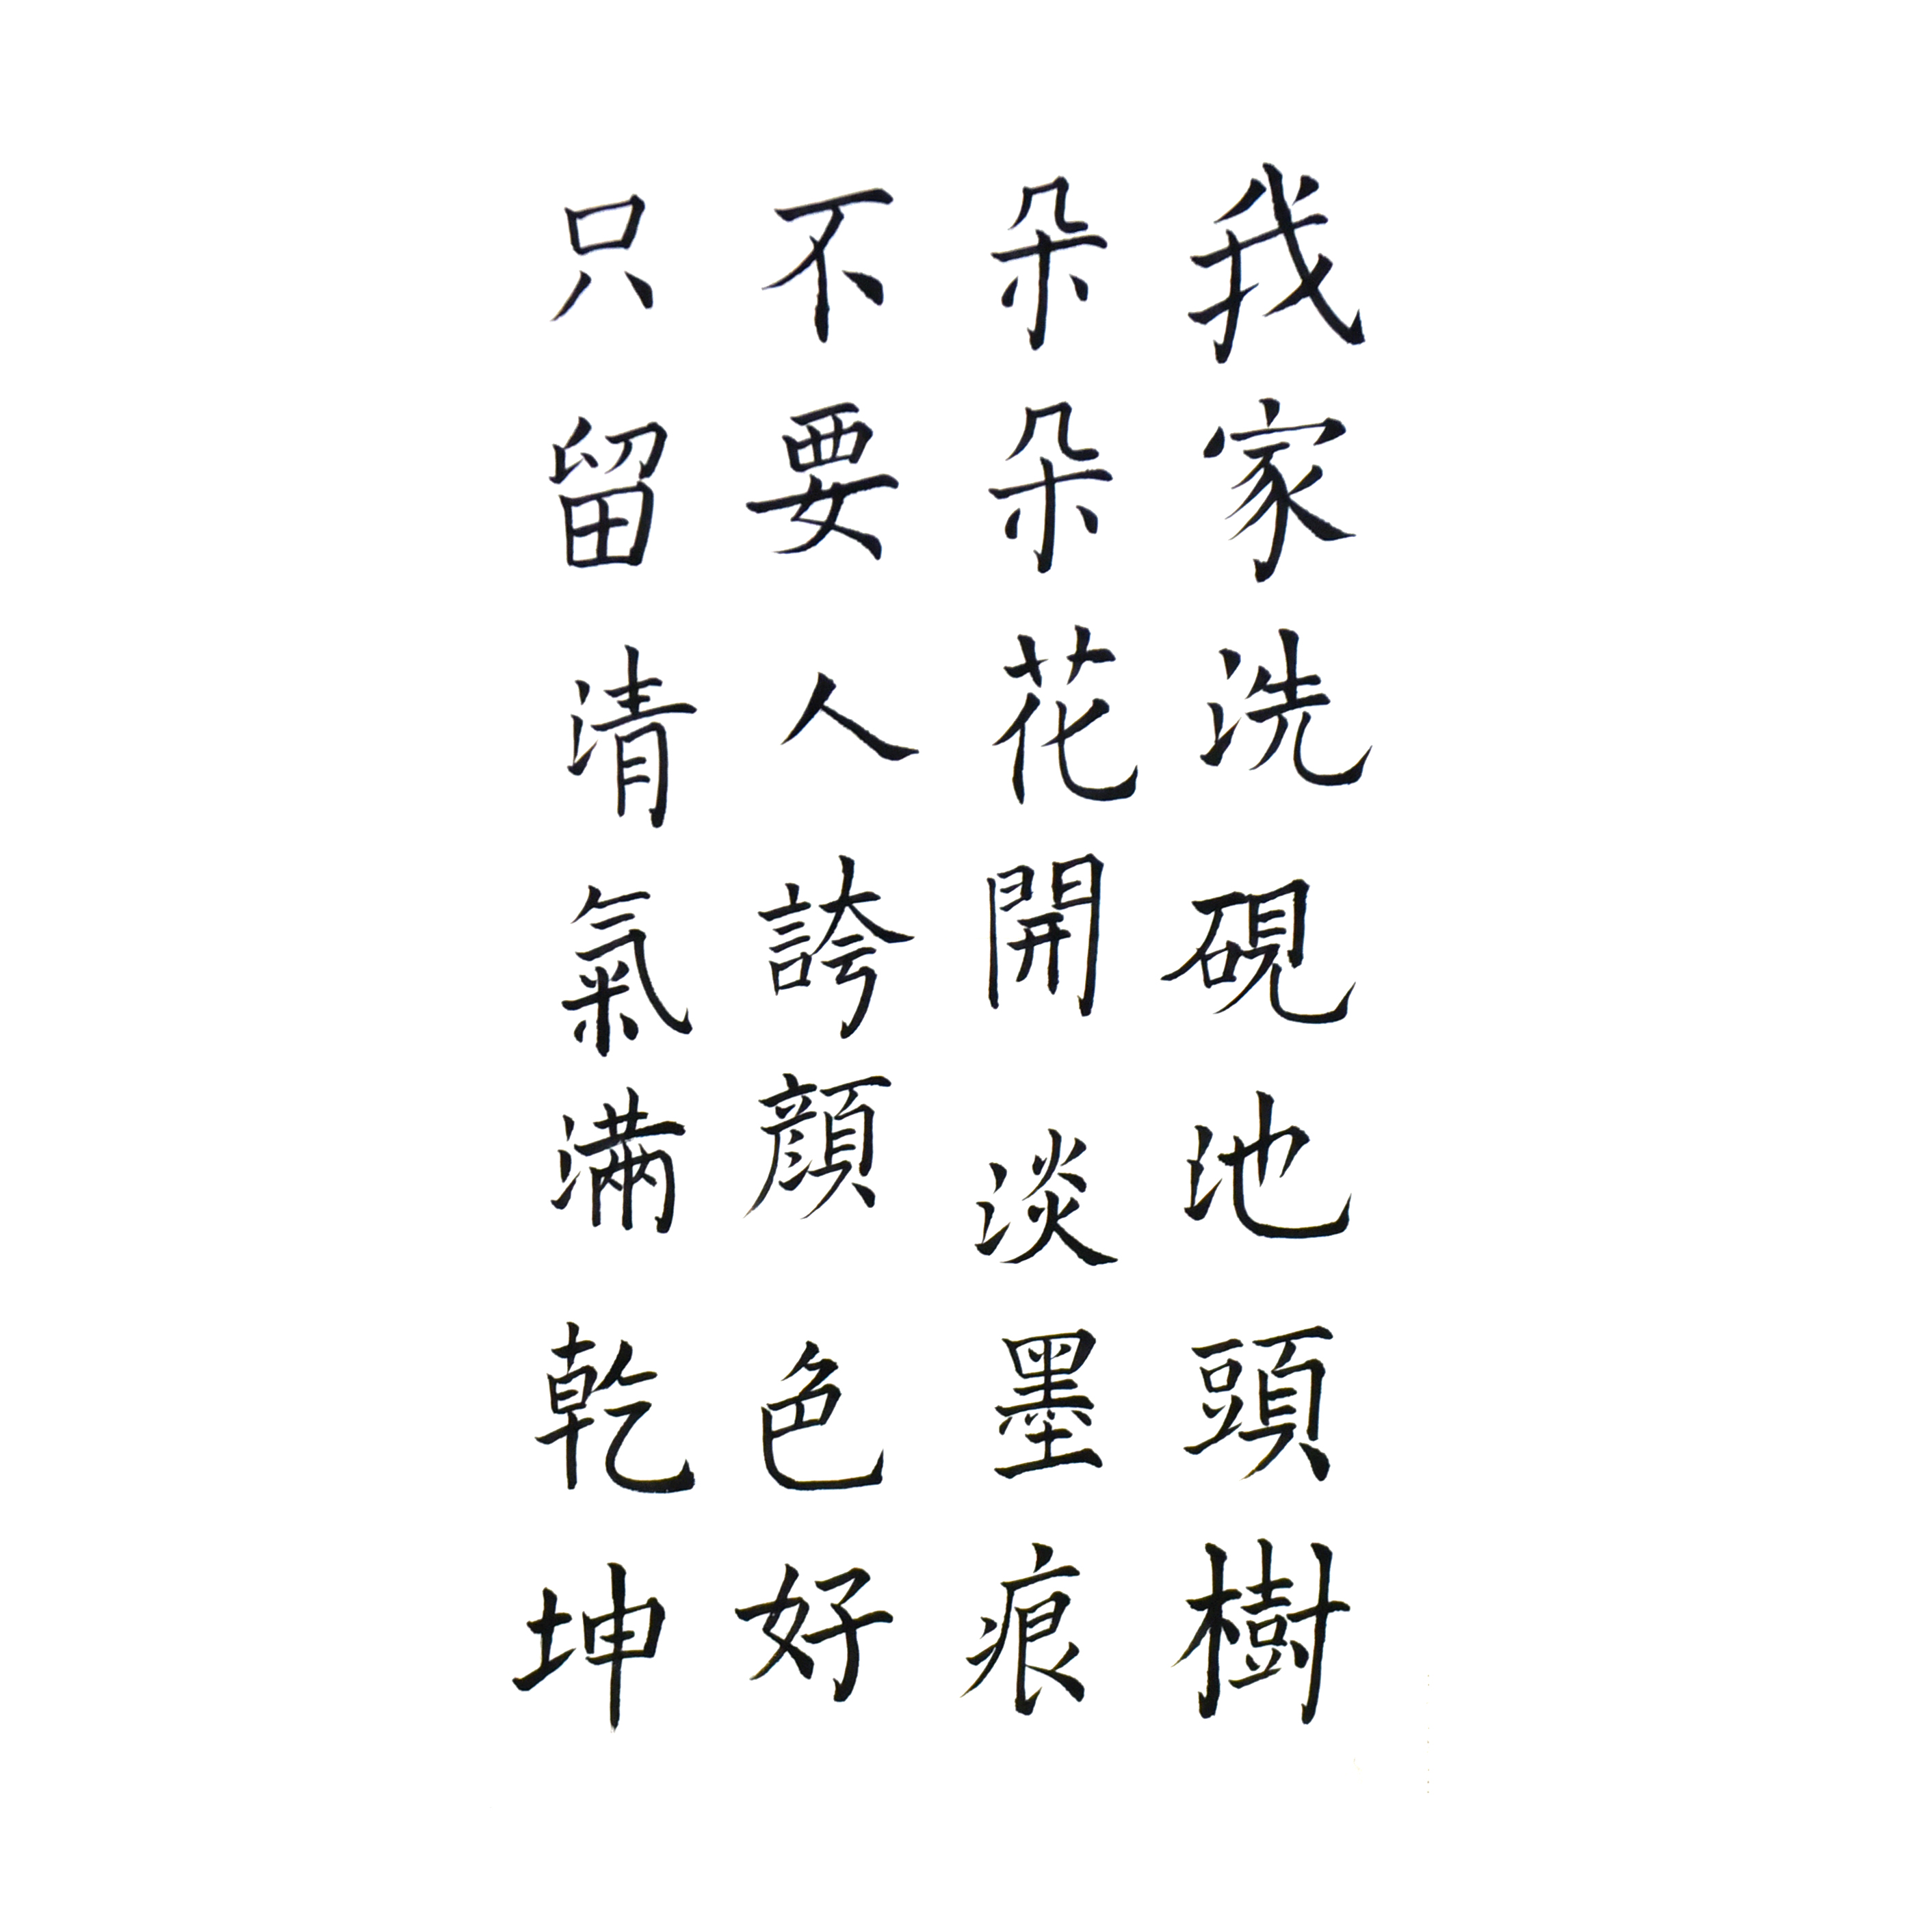 我家洗硯池頭樹
朵朵花開淡墨痕
不要人誇顏色好
只留清氣滿乾坤